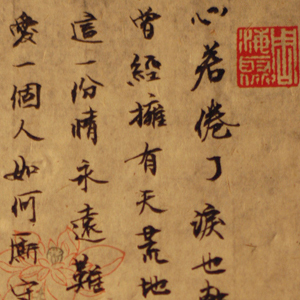 心若倦了淚也
曾經擁有天荒地
這一份情永遠難
愛一個人如何廝守